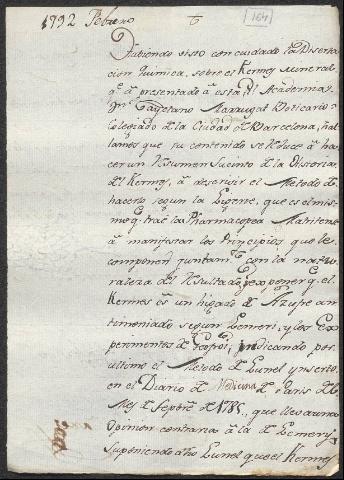 1792 Febrero 6 164
Habiendo visto con cuidado la Diserta
cion Quimica, sobre el Kermes mineral
qe. ha presentado a esta Rl. Academia
Dn. Cayetano Maraugat Boticario
Colegiado de la Ciudad de Barcelona, ha
llamos que su contenido se reduce à ha
cer un Resumen sucinto de la Historia
del Kermes, à descrivir el Metodo de
hacerlo segun la que es el mis
mo q. trae la Pharmacopea Matritense
à manifestar los Principios que le
componen juntamte. con la natu
raleza del Resultado; exponer q. el
Kermes es un higado de Azufre an
timoniado segun Lemeri, y los Ex
perimentos de Geofroi, indicando por
ultimo el Metodo de Lunel ynserto
en el Diario de Medicina de Paris del
Mes de Septre. de 1785, que lleva una
Opinion contraria à la de Lemery
suponiendo dho Lunel que el Kermes